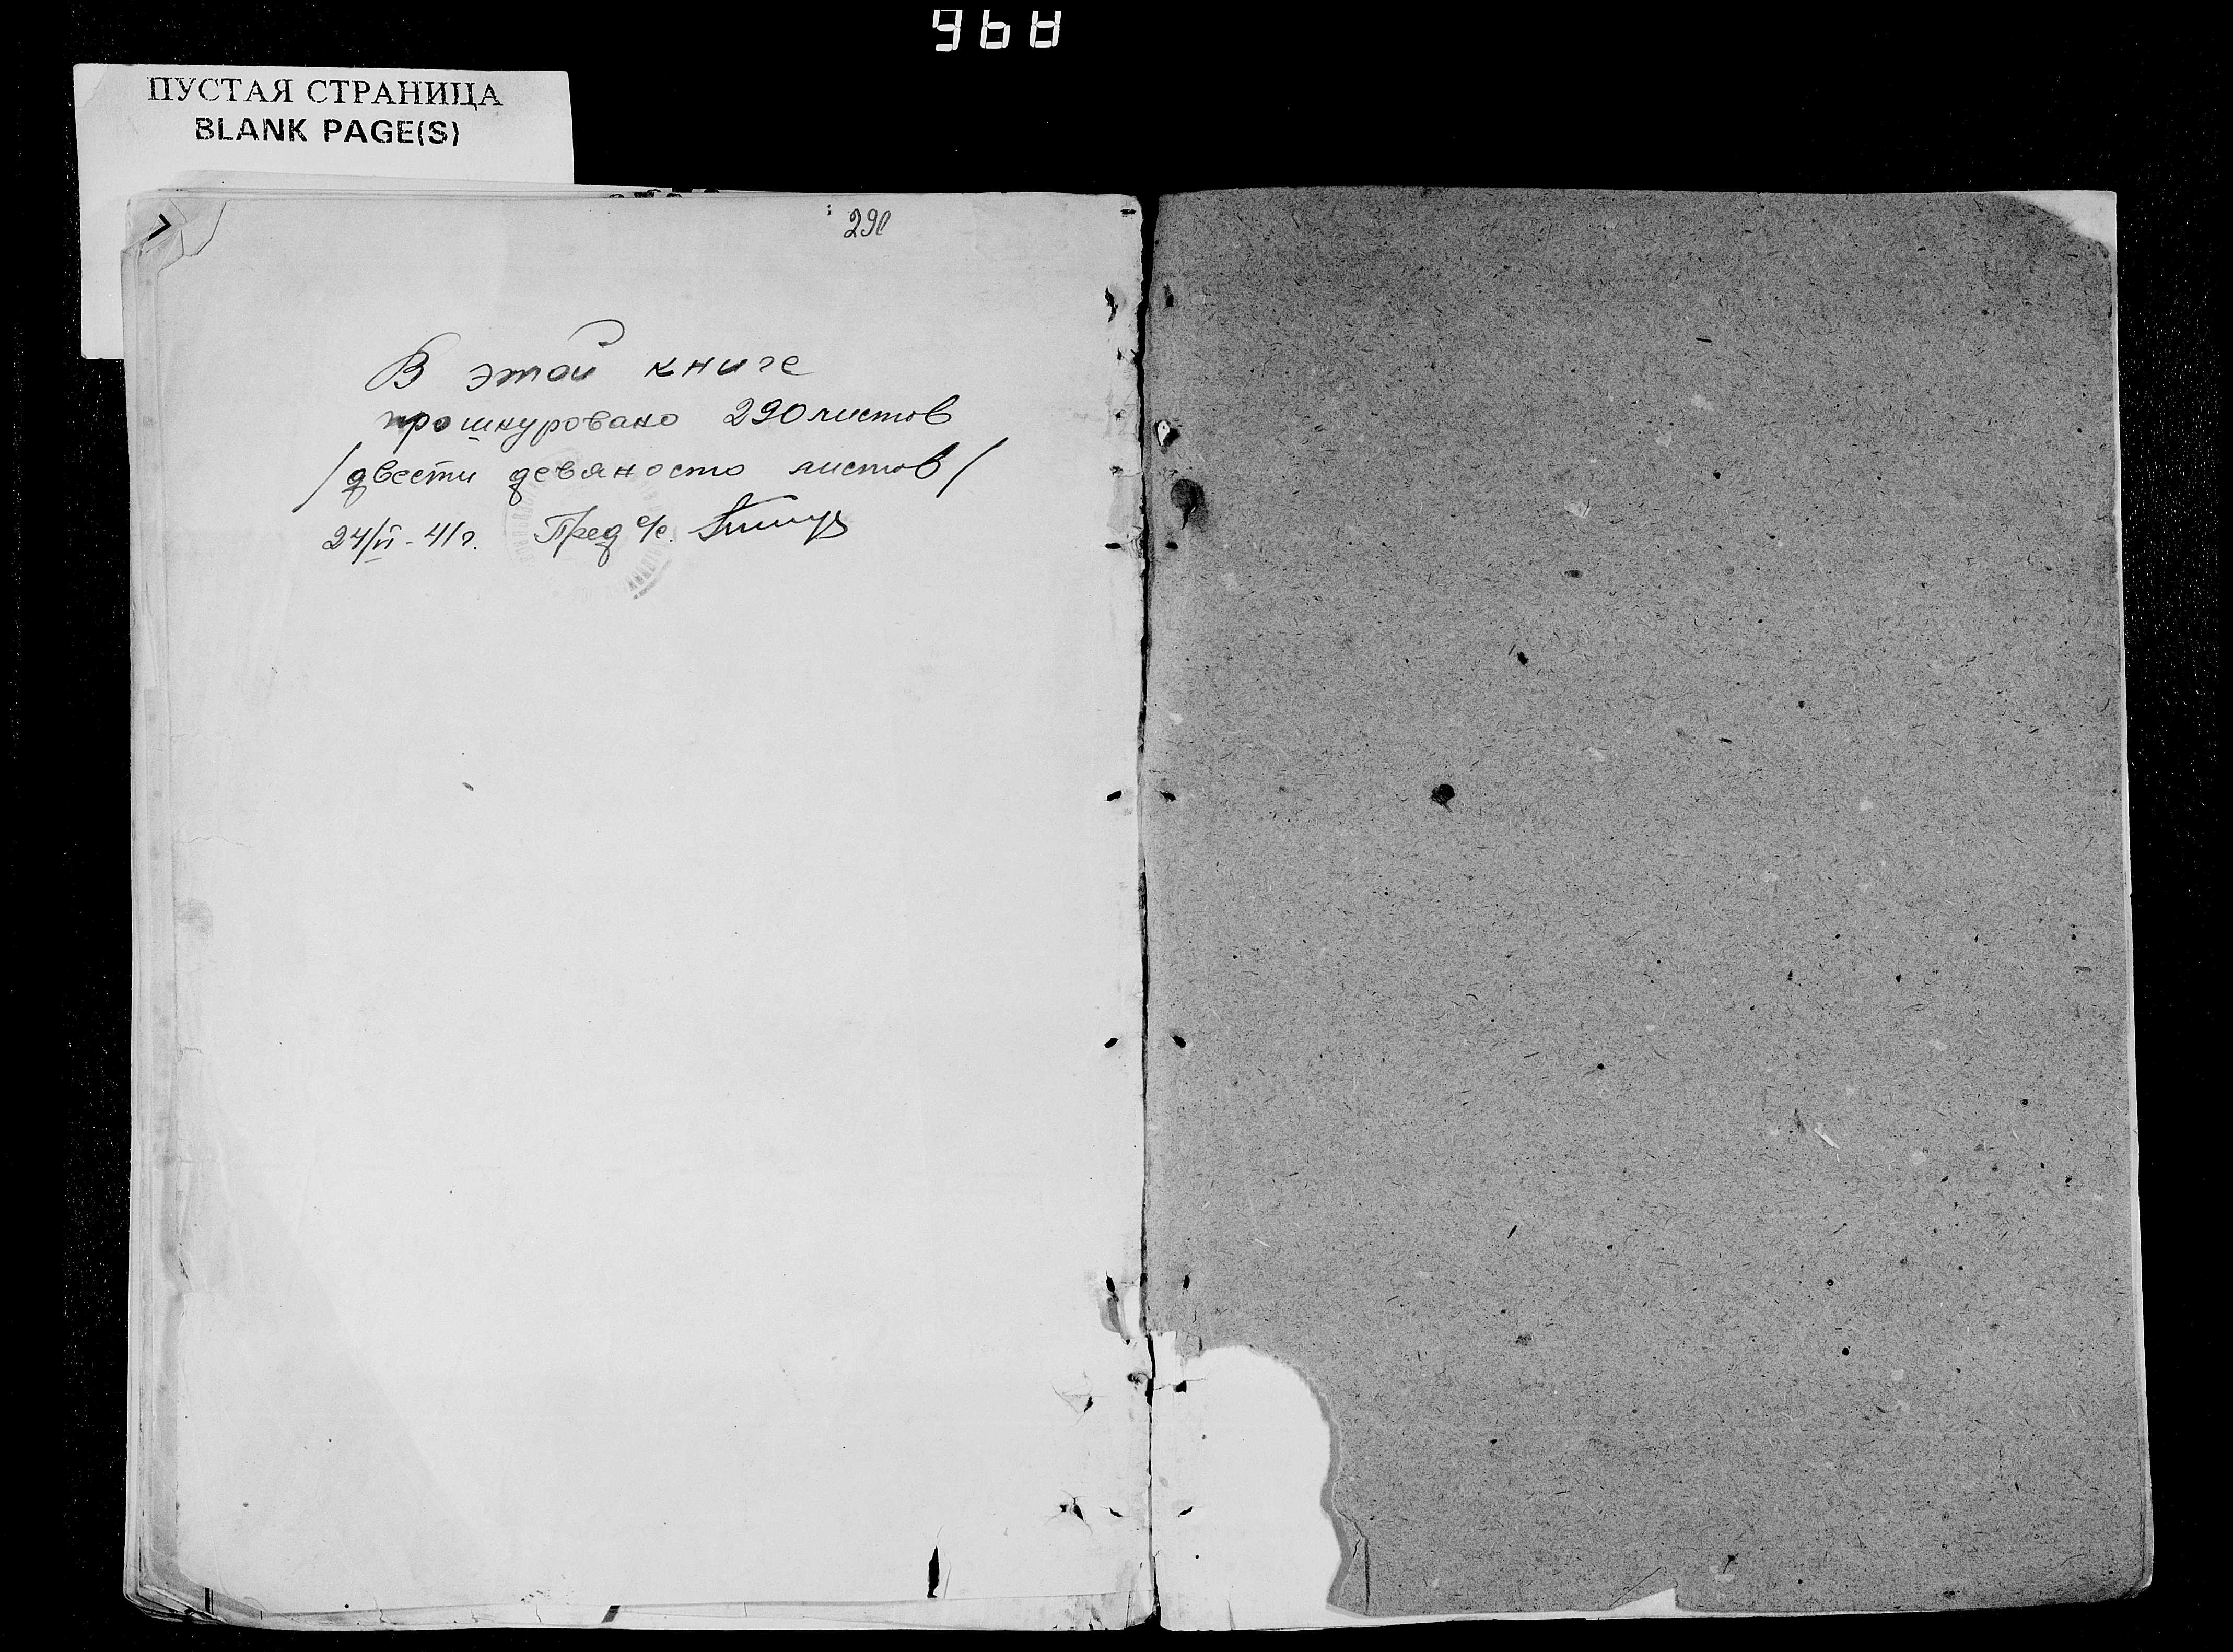 ПУСТАЯ СТРАНИЦА
BLANK PAGE(S)
290
В этой книге
прошнуровано 290 листов
/двести девяносто листов/
24/VI - 41 г. Пред с/с.